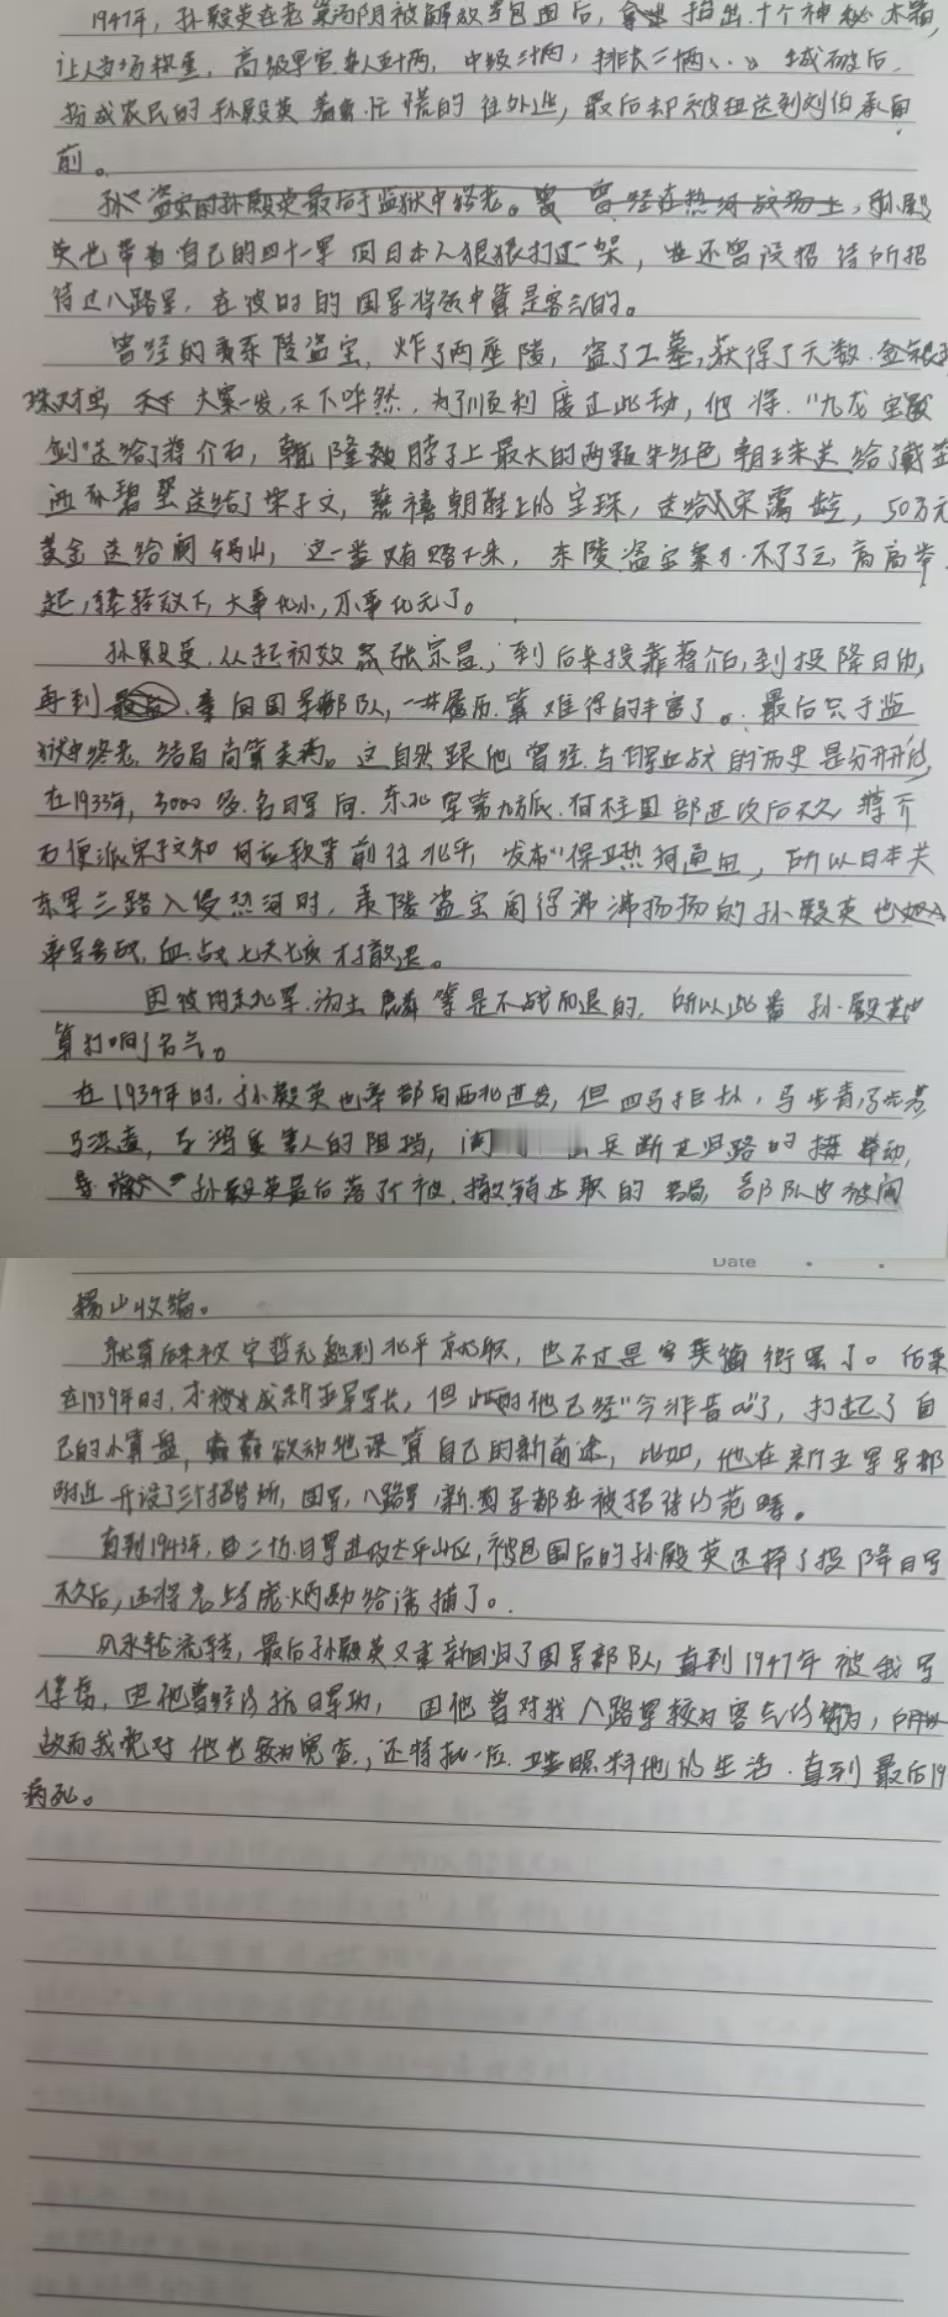 1947年，孙殿英在老巢汤阴被解放军包围后，拿出 掏出十个神秘木箱，
让人当场秤重，高级军官每人五十两，中级三十两，排长二两、、。城破后，
扮成农民的孙殿英着急忙慌的往外逃，最后却被扭送到刘伯承面
前。
孙 盗宝的孙殿英最后于监狱中终老。曾 曾经在热河战场上，孙殿
英也带着自己的四十一军同日本人狠狠打过一架，也还曾设招待所招
待过八路军，在彼时的国军将领中算是客气的。
曾经的东陵盗宝，炸了两座陵，盗了 墓，获得了无数金银
珠 宝，大案一发，天下哗然，为了顺利度过此劫，他将"九龙宝
剑"送给了蒋介石，乾隆 脖子上最大的两颗朱红色朝珠送给了戴笠
送给了宋子文，慈禧朝鞋上的宝珠，送给宋霭龄，50万元
黄金送给阎锡山，这一番贿赂下来，东陵盗宝案才不了了之，高高举
起，轻轻放下，大事化小，小事化无了。
孙殿英，从起初效 张宗昌，到后来投靠蒋介石，到投降日伪，
再到最后 重回国军部队，一共履历，算难得的丰富了。最后只于监
狱中终老，结局尚算 。这自然跟他曾经与日军血战的历史是分不开的，
在1933年，3000多名日军向东北军第九旅何柱国部进攻后不久，蒋介
石便派宋子文和何应钦等前往北平，发布"保卫热河通电，所以日本关
东军三路入侵热河时，东陵盗宝闹得沸沸扬扬的孙殿英也
率军参战，血战七天七夜才撤退。
因彼时东北军汤玉麟等是不战而退的，所以此番孙殿英也
算打响了名气。
在1934年时，孙殿英也率部向西北进发，但四马拒 ，马步青，马步芳
马鸿逵，马鸿宾等人的阻挡，阎 兵断其归路的 举动，
导 孙殿英最后落了个被撤销本职的 局，部队也被阎
锡山收编。
就算后来被宋哲元 到北平 职，也不过是 衔罢了。后来
在1939年时，才被 成新五军军长，但此时他已经"今非昔比"了，打起了自
己的小算盘，蠢蠢欲动地谋算自己的新前途，比如，他在新五军军部
附近开设了三个招待所，国军，八路军，新 军都在被招待的范畴。
直到1943年，由二 日军进攻太平山区，被包围后的孙殿英选择了投降日军
不久后，还将老上级庞炳勋给诱捕了。
风水轮流转，最后孙殿英又重新回归了国军部队，直到1947年被我军
俘虏，因他曾经的抗日军功，因他曾对我八路军较为客气的行为，所以
故而我党对他也较为宽容，还特批一位 照料他的生活，直到最后19
病死。
Date